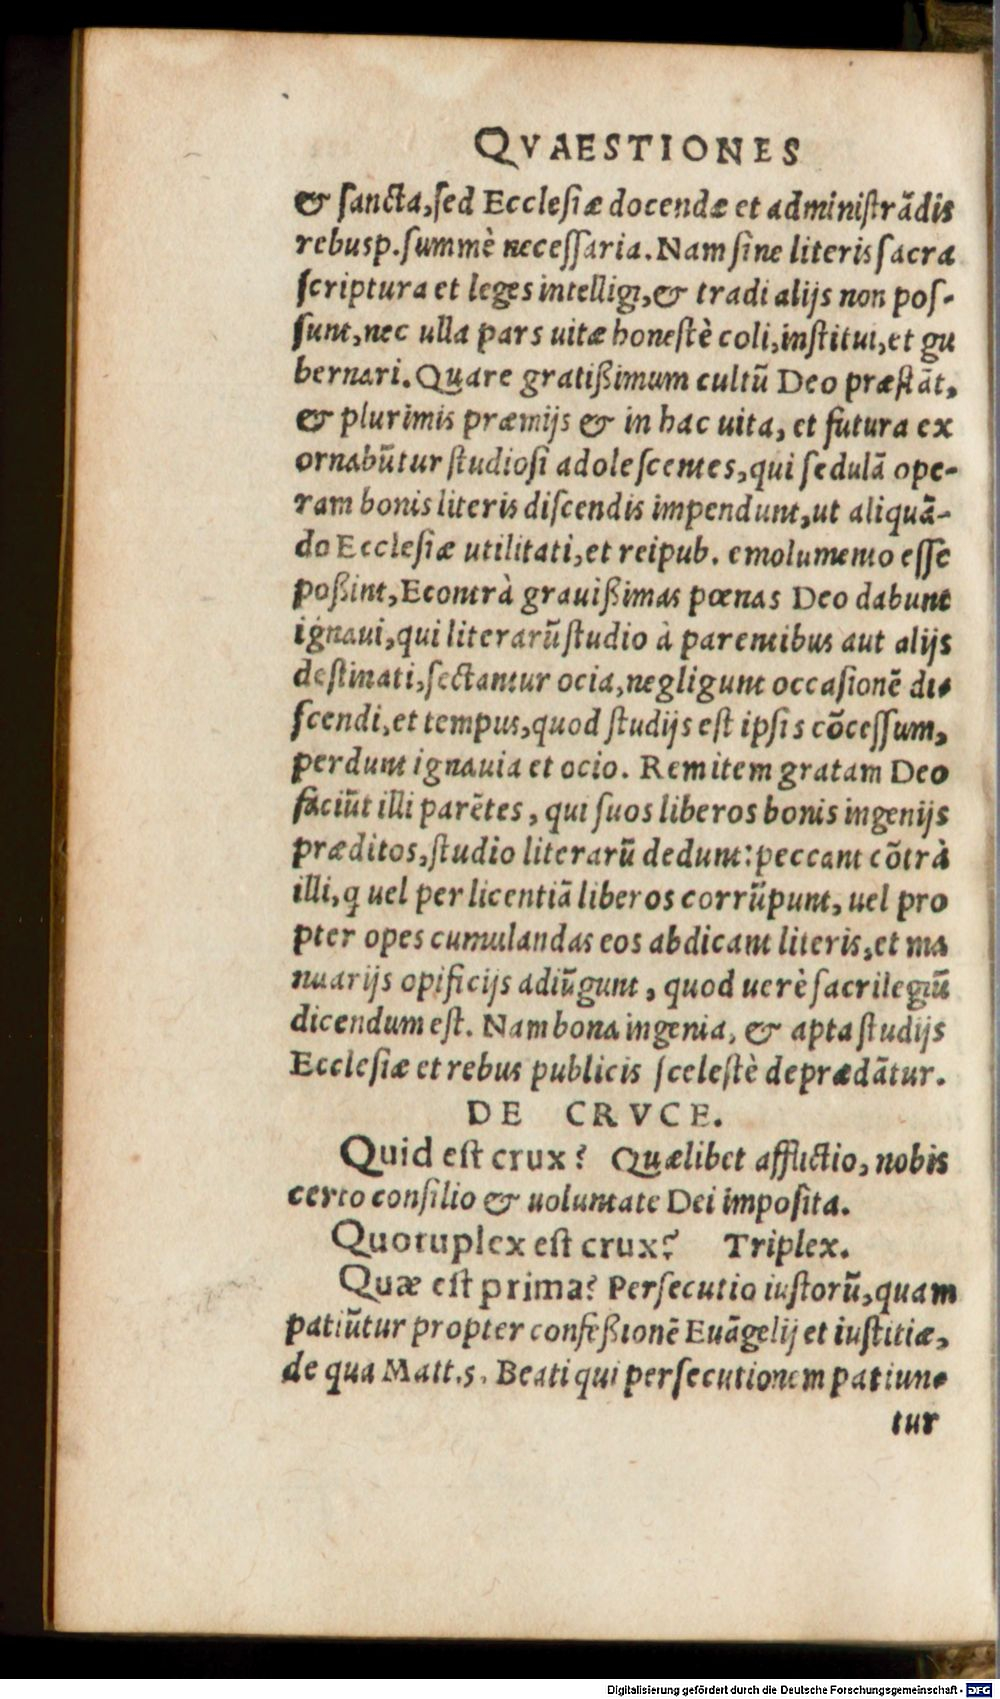 QVAESTIONES
& sancta, sed Ecclesiæ docendæ et administrãdis
rebusp. summè necessaria. Nam sine literis sacra
scriptura et leges intelligi, & tradi alijs non pos-
sunt, nec ulla pars uitæ honestè coli, institui, et gu
bernari. Quare gratißimum cultũ Deo præstãt,
& plurimis præmijs & in hac uita, et futura ex
ornabũtur studiosi adolescentes, qui sedulã ope-
ram bonis literis discendis impendunt, ut aliquã-
do Ecclesiæ utilitati, et reipub. emolumento esse
poßint, Econtrà grauißimas pœnas Deo dabunt
ignaui, qui literarũ studio à parentibus aut alijs
destinati, sectantur ocia, negligunt occasionẽ di-
scendi, et tempus, quod studijs est ipsis cõcessum,
perdunt ignauia et ocio. Rem item gratam Deo
faciũt illi parẽtes, qui suos liberos bonis ingenijs
præditos, studio literarũ dedunt: peccant cõtrà
illi, q uel per licentiã liberos corrũpunt, uel pro
pter opes cumulandas eos abdicant literis, et ma
nuarijs opificijs adiũgunt, quod uerè sacrilegiũ
dicendum est. Nam bona ingenia, & apta studijs
Ecclesiæ et rebus publicis scelestè deprædãtur.
DE CRVCE.
Quid est crux? Quælibet afflictio, nobis
certo consilio & uoluntate Dei imposita.
Quotuplex est crux? Triplex.
Quæ est prima? Persecutio iustorũ, quam
patiũtur propter confeßionẽ Euãgelij et iustitiæ,
de qua Matt. 5. Beati qui persecutionem patiun-
tur
Digitalisierung gefördert durch die Deutsche Forschungsgemeinschaft - DFG